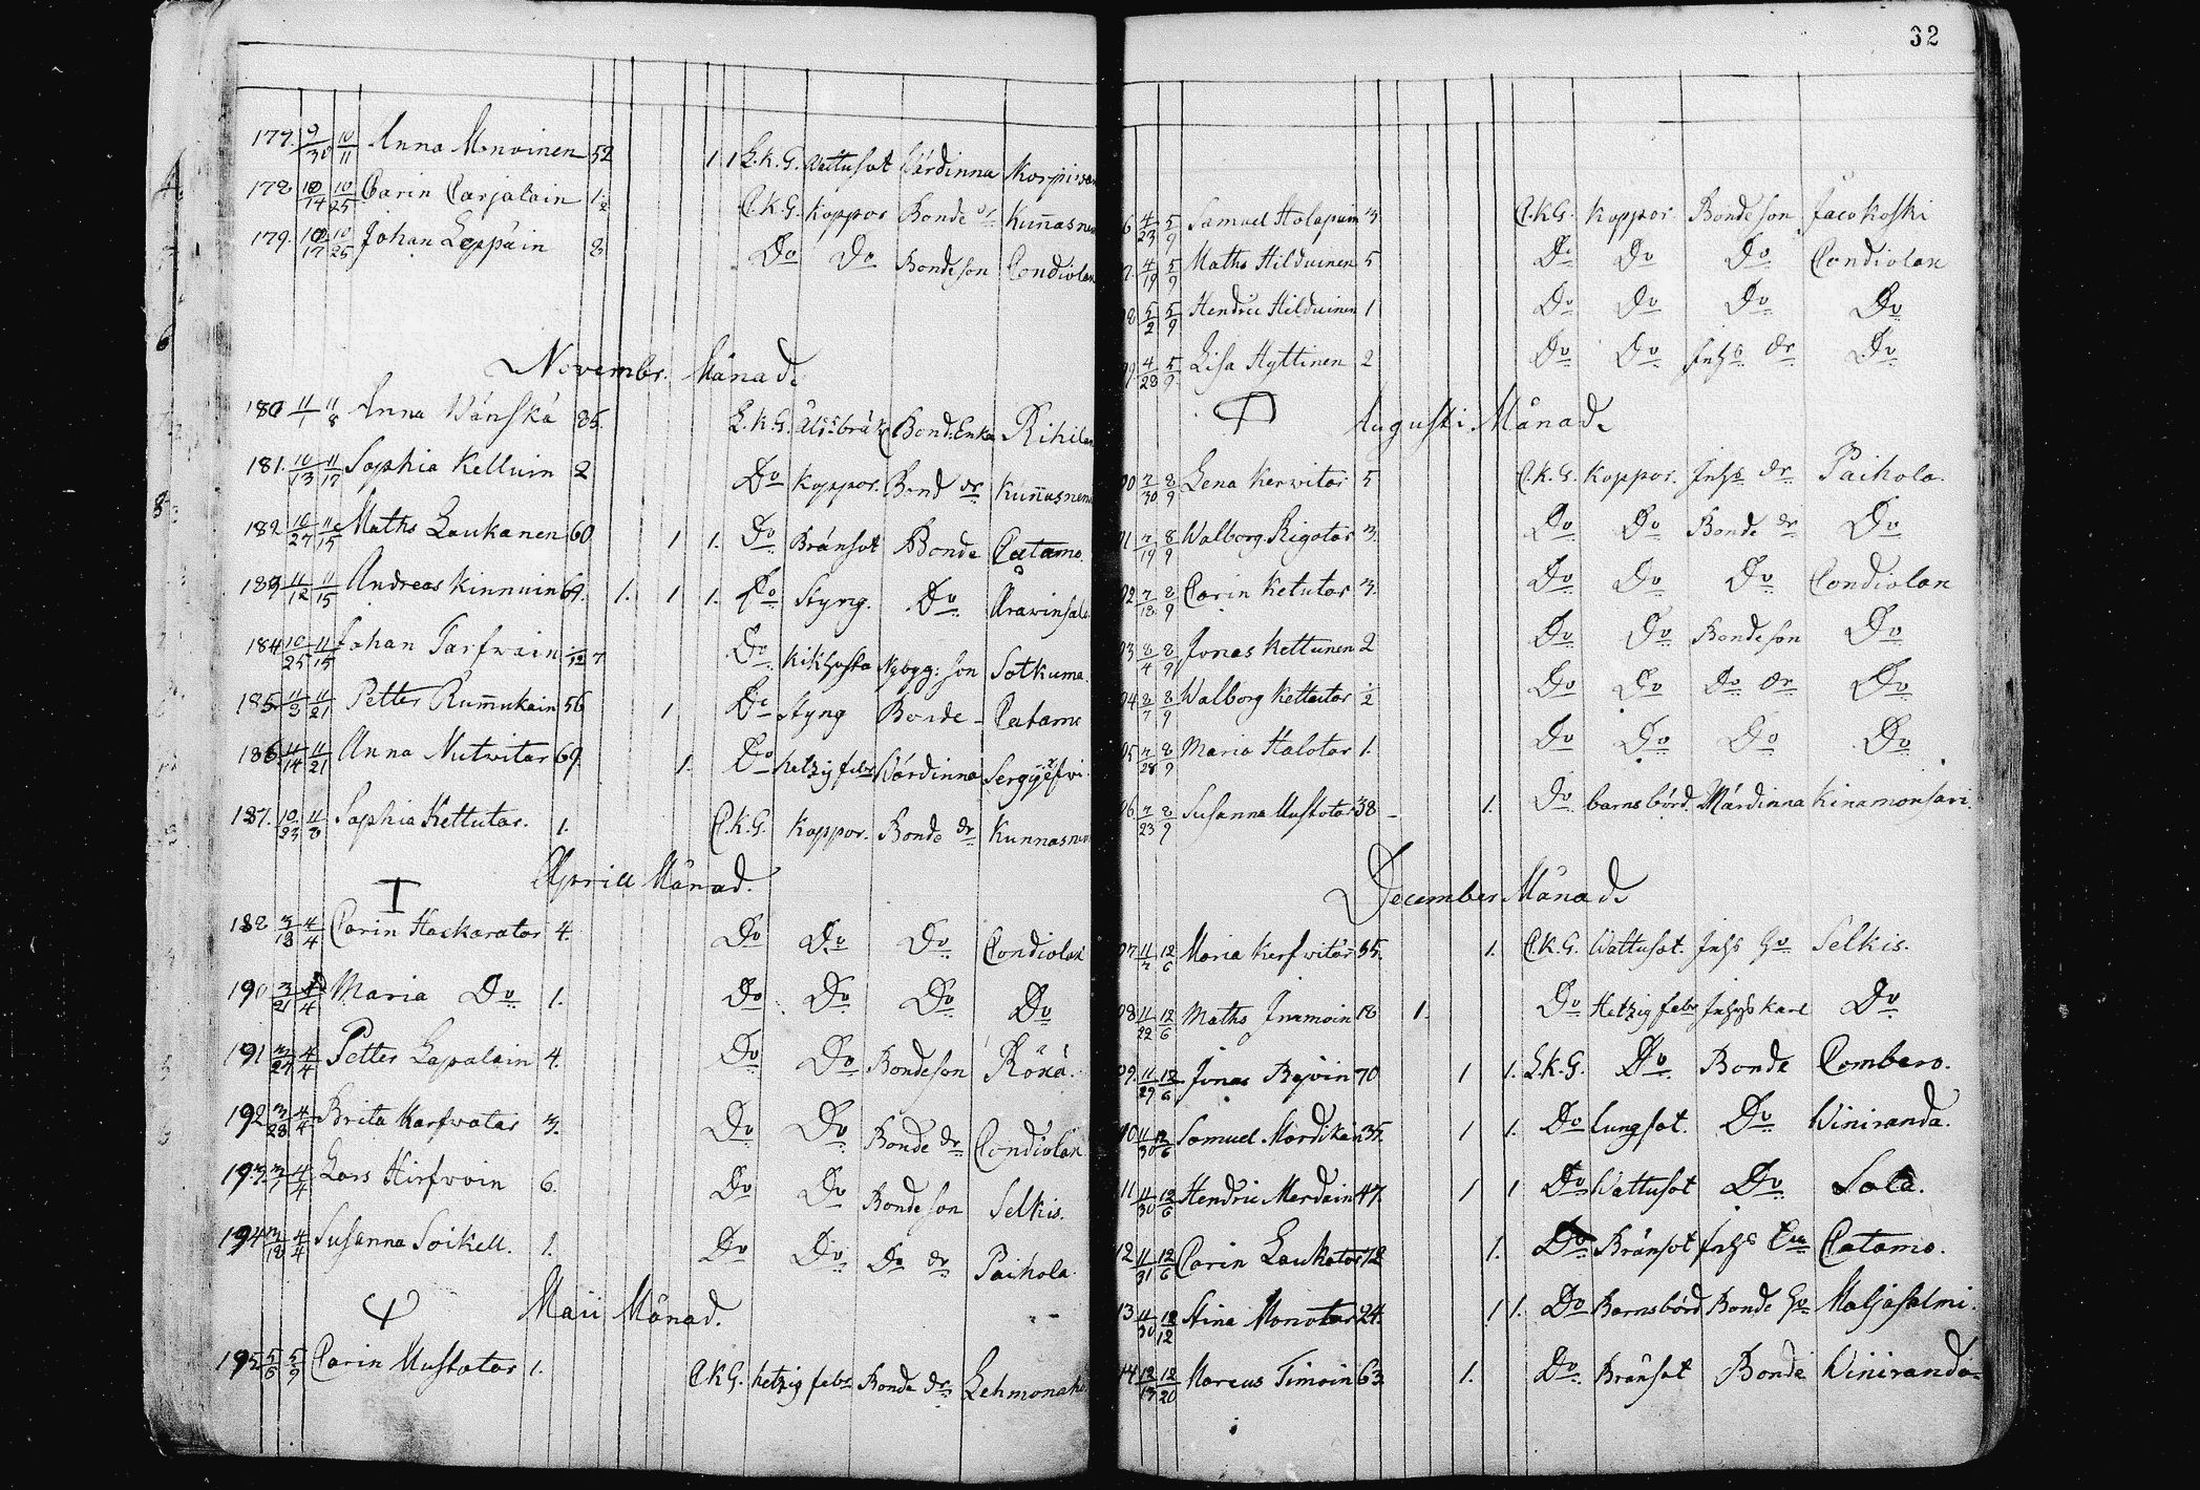 32
177. 9/30 10/11 Anna Monoinen 52 1 1 L.K.G. Wattusot Wärdinna
178 10/14 10/25 Carin Carjalain 1/2 C.K.G. Koppor Bonde dr Kuñasnem
179. 10/17 10/25 Johan Leppäin 8 Do Do Bondeson Condiolax
Novembr. Månad.
180 11/1 11/8 Anna Wänskä 85. L.K.G. Bond: Enka Rihilax
181. 10/13 11/17 Sophia Kelluin 2 Do Koppor. Bond dr Kuñasnem
182 10/27 11/15 Maths Laukanen 60 1 1. Do Bränsot Bonde Catamo.
183 11/12 11/15 Andreas Kinnuin 69. 1. 1 1. Do Styng. Do Arawinsalo
184 10/25 11/15 Johan Tarfwain 7/12 Do Kikhosta Nybygg: son Sotkuma.
185 11/3 11/21 Petter Rum̃ukain 56 1 Do Styng Bonde Catamo
186 11/14 11/21 Anna Mutwitar 69 1. Do hetzig feber Wärdinna
187. 10/23 11/8 Sophia Kettutar. 1. C.K.G. Koppor. Bonde dr Kunnasnem
Aprill Månad.
188 3/18 4/4 Carin Hackaratar 4. Do Do Do Condiolax
190 3/21 4/4 Maria Do 1. Do Do Do Do
191 3/24 4/4 Petter Lapalain 4. Do Do Bondeson Röxä.
192 3/28 4/4 Brita Karfwatar 3. Do Do Bonde dr Condiolax
193 4/4 Lars Hirfwoin 6. Do Do Bondeson Selkis.
194 3/18 4/4 Susanna Soikell. 1. Do Do Do dr Paihola
Maii Månad.
195 5/6 5/9 Carin Mustatar 1. C.K.G. hetzig feber Bonde dr Lehmonaho
6 4/23 5/9 Samuel Holapain 3 C.K.G. Koppor. Bondeson Jacokoski
7 4/19 5/9 Maths Hilduinen 5 Do Do Do Condiolax
8 5/2 5/9 Hendric Hilduinen 1 Do Do Do Do
9 4/28 5/9 Lisa Hyttinen 2 Do Do Inhs dr Do
Augusti Månad.
00 7/30 8/9 Lena Kerwitar 5 C.K.G. Koppor. Inhs dr Paihola.
01 7/19 8/9 Walborg Rigotar 3. Do Do Bonde dr Do
02 7/18 8/9 Carin Ketutar 3. Do Do Do Condiolax
03 8/4 8/9 Jonas Kettunen 2 Do Do Bondeson Do
04 8/7 8/9 Walborg Kettutar 1/2 Do Do Do dr Do
05 7/28 8/9 Maria Halotar 1. Do Do Do Do
06. 7/23 8/9 Susanna Mustotar 38 1. Do barnsbörd. Wärdinna Kinamonsari.
December Månad.
07 11/7 12/6 Maria Kerfwitar 35. 1. C.K.G. Wattusot. Inhs Hu Selkis.
08 11/22 12/6 Maths Immoin 18 1. Do Hetzig feber Inhys karl Do
09. 11/29 12/6 Jonas Rejoin 70 1 1. L.K.G. Do Bonde Combero.
10 11/30 12/6 Samuel Mardikain 35. 1 1. Do lungsot. Do Winiranda.
11 11/30 12/6 Hendric Merdain 47. 1 1 Do Wattusot Do Sola.
12 11/31 12/6 Carin Laukatar 72 1. Do Bränsot Inhs Catamo.
13 11/30 12/12 Stina Monotar 24. 1 1. Do Barnsbörd Bonde Hu Maljasalmi.
14 12/13 12/20 Marcus Timoin 63. 1. Do Bränsot Bonde Winiranda